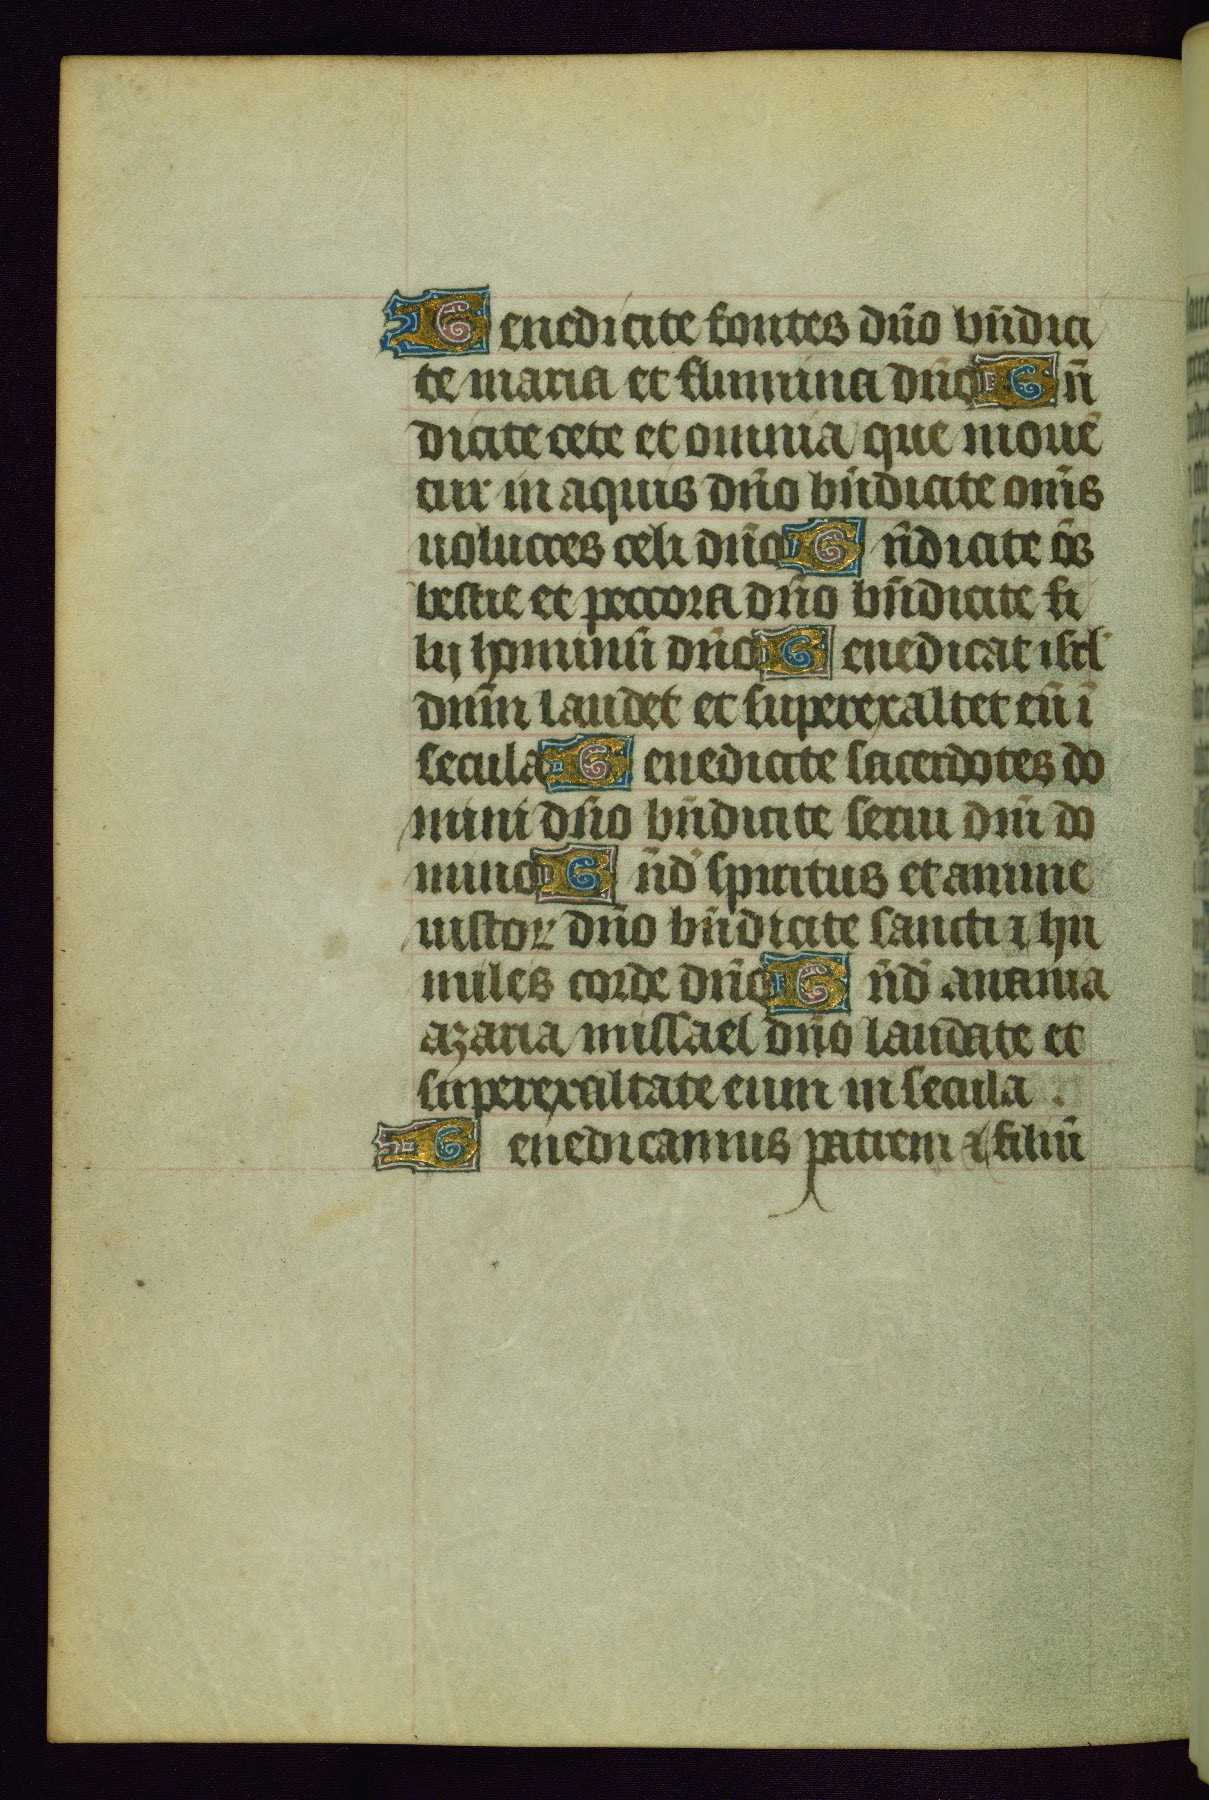 Benedicite fontes dn̄o bn̄dici
te maria et flumina dn̄o Bn̄
dicite cete et omnia que mouē
tur in aquis dn̄o bn̄dicite om̄s
uolucres celi dn̄o Bn̄dicite ōs
bestie et peccora dn̄o bn̄dicite fi
lij hominū dn̄o Benedicat isrl'
dnm̄ laudet et superexaltet eū ī
secula Benedicite sacerdotes do
mini dn̄o bn̄dicite serui dn̄i do
mino Bn̄d' spiritus et anime
iustoꝝ dn̄o bn̄dicite sancti ⁊ hu
miles corde dn̄o Bn̄d' anania
azaria missael dn̄o laudate et
superexaltate eum in secula .
Benedicamus patrem ⁊ filiū